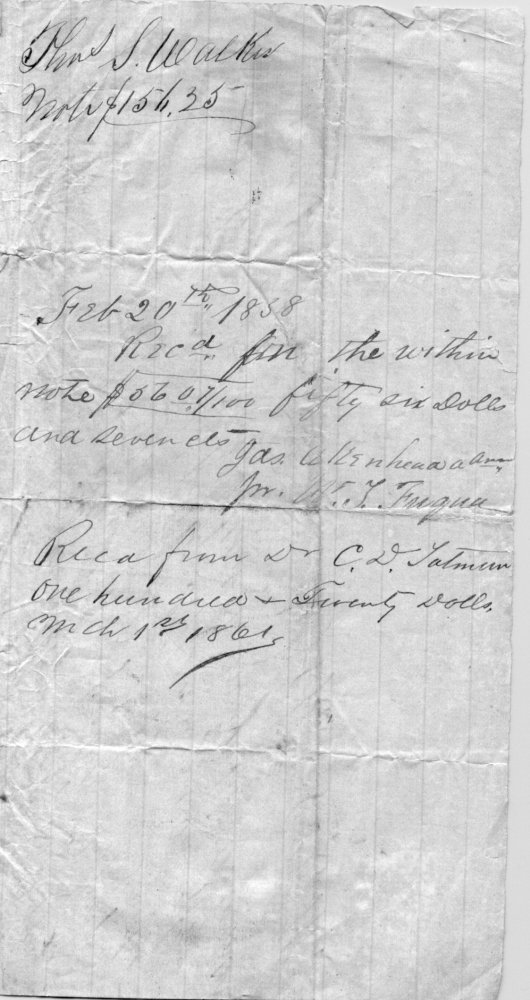 Thos S. Walker
Note $156.25
Feb 20th 1858
Recd on the within
note $56 07/100 fifty six Dolls
and seven cts
Jas. Aikenhead
pr. Wm. T. Fuqua
Recd from Dr C. D. Totmun
one hundred & Twenty Dolls.
Mch 1st 1861